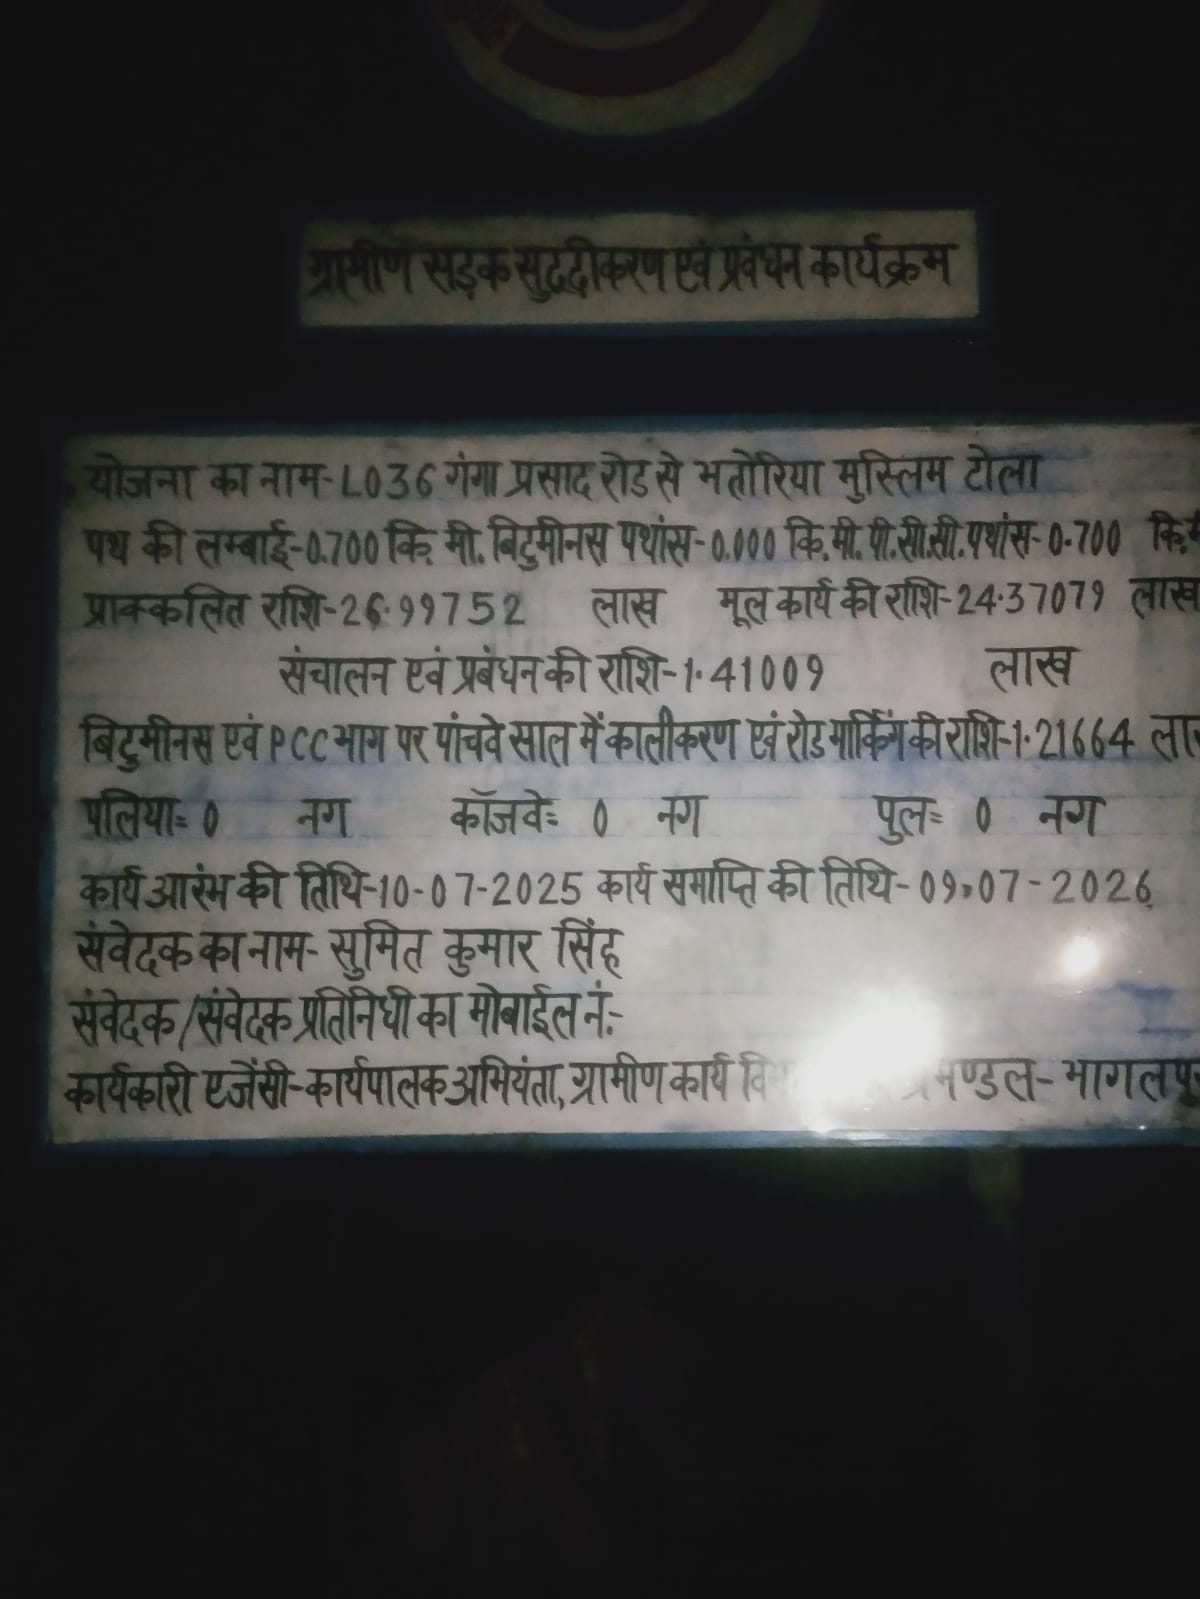 ग्रामीण सड़क सुदृढीकरण एवं प्रबंधन कार्यक्रम
योजना का नाम- L036 गंगा प्रसाद रोड से भतोरिया मुस्लिम टोला
पथ की लम्बाई-0.700 कि. मी. बिटुमीनस पथांस-0.000 कि.मी. पी.सी.सी. पथांस- 0.700 कि.
प्राक्कलित राशि-26.99752 लाख मूल कार्य की राशि-24.37079 लाख
संचालन एवं प्रबंधन की राशि-1.41009 लाख
बिटुमीनस एवं PCC भाग पर पांचवे साल में कालीकरण एवं रोड मार्किंग की राशि-1.21664
पलिया= 0 नग कॉजवे= 0 नग पुल= 0 नग
कार्य आरंभ की तिथि-10-07-2025 कार्य समाप्ति की तिथि- 09-07-2026
संवेदक का नाम- सुमित कुमार सिंह
संवेदक/संवेदक प्रतिनिधी का मोबाईल नं:-
कार्यकारी एजेंसी-कार्यपालक अभियंता, ग्रामीण कार्य